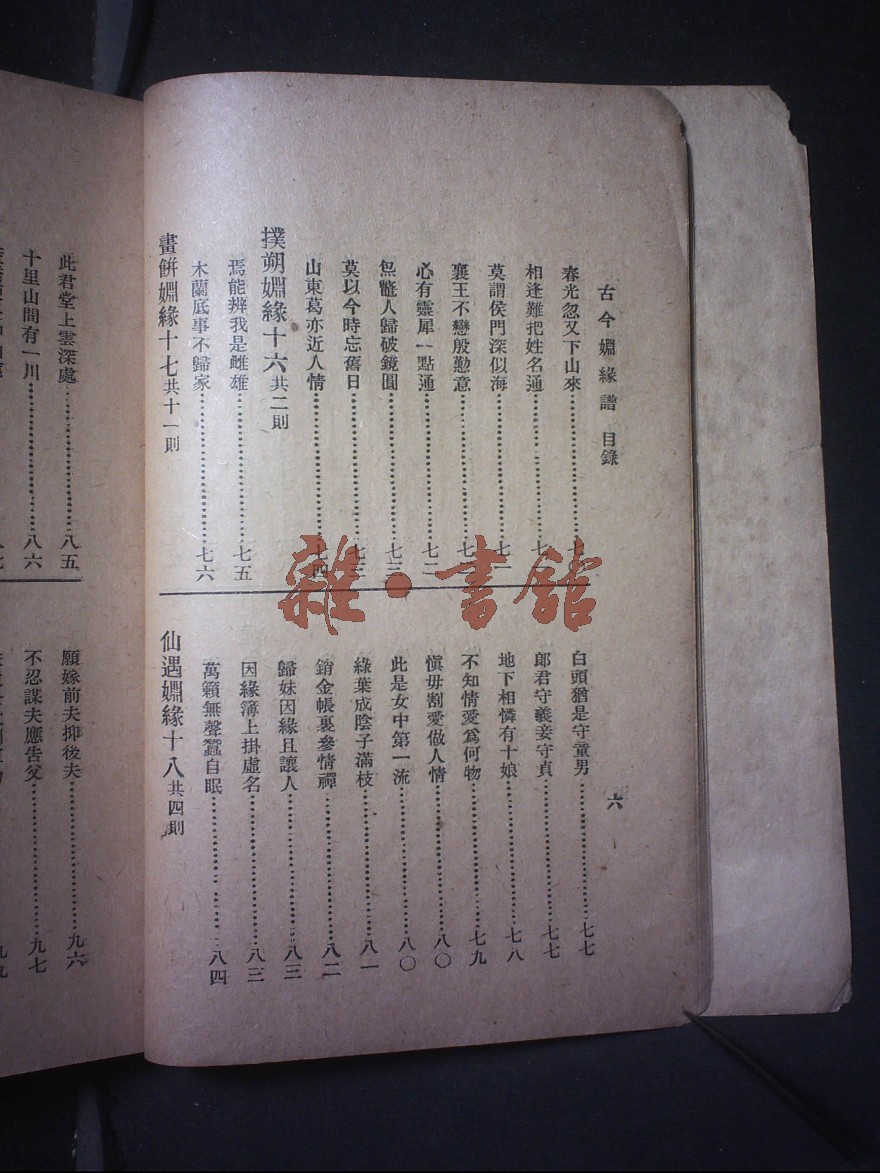 古今婣緣譜　目錄
六
春光忽又下山來
相逢難把姓名通
莫謂侯門深似海
襄王不戀殷勤意
心有靈犀一點通……七二
無鹽人歸破鏡圓……七三
莫以今時忘舊日……七三
山東葛亦近人情……七四
撲朔婣緣十六共二則
焉能辨我是雌雄……七五
木蘭底事不歸家……七六
畫餅婣緣十七共十一則
白頭猶是守童男……七七
郎君守義妾守貞……七七
地下相憐有十娘……七八
不知情愛為何物……七九
愼毋割愛做人情……八〇
此是女中第一流……八〇
綠葉成陰子滿枝……八一
銷金帳裏參情禪……八二
歸妹因緣且讓人……八三
因緣簿上掛虛名……八三
萬籟無聲蠶自眠……八四
仙遇婣緣十八共四則
此君堂上雲深處……八五
十里山間有一川……八六
願嫁前夫抑後夫……九六
不忍謀夫應告父……九七
雜·書館